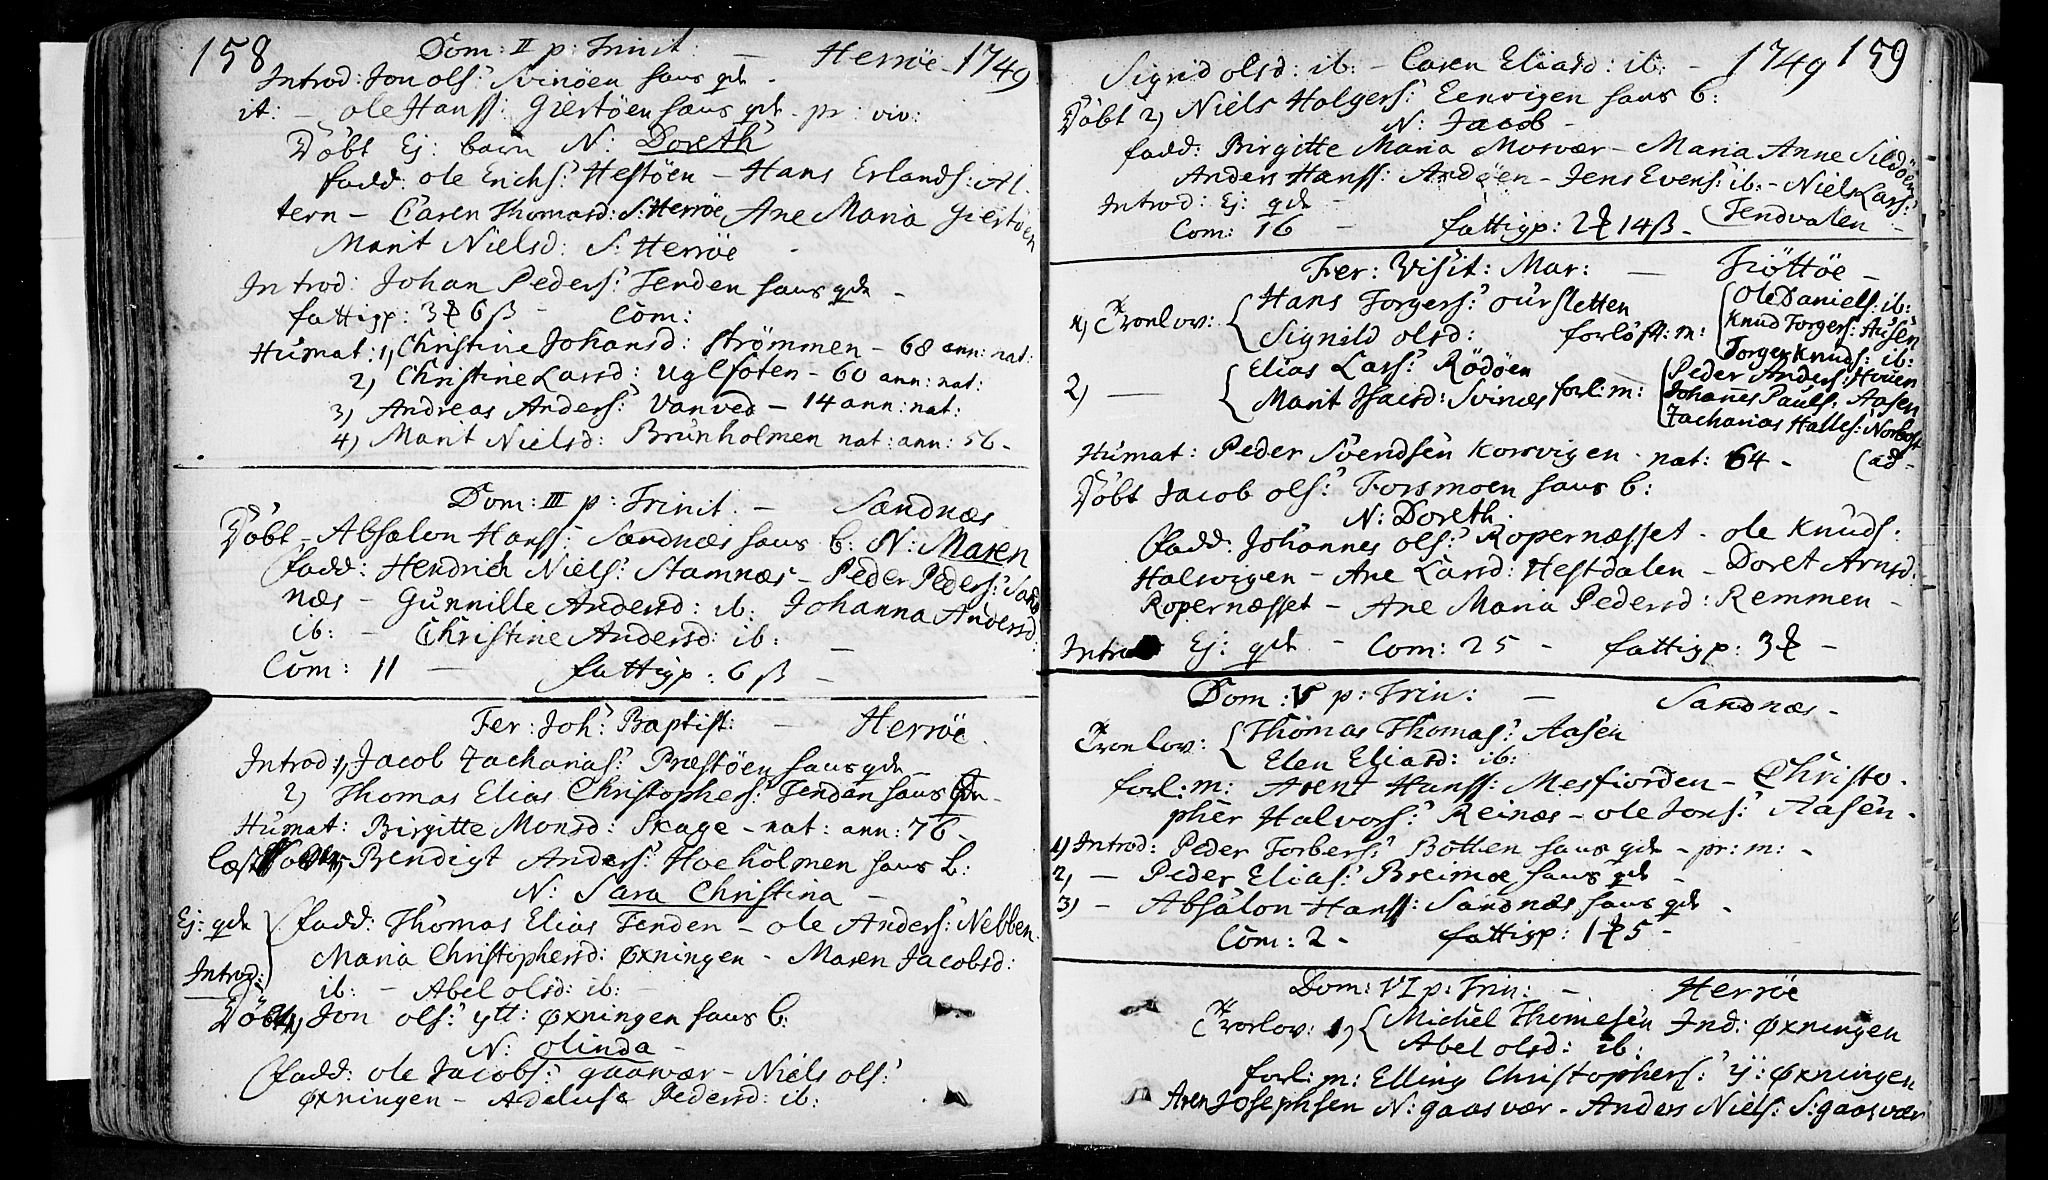 158 Dom: II p: Trinit: — Herröe 1749
Introd: Jon ols: Svinöen hans qde -
it: - ole Hanss: Giertöen hans qde - pr: viv:
Döbt Ej: barn N: Doreth
fadd: ole Erichs: Hestöen - Hans Erlands: Al-
tern - Caren Thomasd: S: Herröe Ane Maria Giertöen
Marit Nielsd: S: Herröe -
Introd: Johan Peders: Tenden hans qde -
fattigp: 3 6 ß - Com:
Humat: 1, Christine Johansd: Strömmen - 68 ann: nat:
2) Christine Larsd: Uglfoten - 60 ann: nat:
3) Andreas Anders: Vanved - 14 ann: nat:
4) Marit Nielsd: Brunholmen nat: ann: 56 -
Dom: III p: Trinit. - Sandnæs
Döbt - Absalon Hanss: Sandnæs hans b: N: Maren
fadd: Hendrich Niels: Stamnæs - Peder Peders: Sand
næs - Gunnille Andersd: ib: Johanna Andersd:
ib: - Christine Andersd: ib: -
Com: 11 - fattigp: 6 ß -
Fer: Joh: Baptist: - Herröe
Introd: 1, Jacob Zacharias: Præstöen hans qde -
2) Thomas Elias Christophers: Tenden hans qde -
Humat: Birgitte Monsd: Skage - nat: ann: 76 -
læst Bendigt Anders: Hoeholmen hans b:
N: Sara Christina -
Ej: qde fadd: Thomas Elias Tenden - ole Anders: Nebben
Maria Christophersd: Øxningen - Maren Jacobsd:
Introd: ib: - Abel olsd: ib: -
Döbt Jon ols: ytt: Øxningen hans b:
N: olinda -
fadd: ole Jacobs: gaasvær - Niels ols:
Øxningen - Adelusa Pedersd: ib:
Sigrid olsd: ib: - Caren Eliasd: ib: - 1749 159
Döbt 2, Niels Holgers: Eenvigen hans b:
N: Jacob -
fadd: Birgitte Maria Mosvær - Maria Anne Sildöen
Anders Hanss: Andöen - Jens Evens: ib: - Niels Lars:
Introd: Ej: qde - Tendvalen -
Com: 16 - fattigp: 2 14 ß -
Fer: Visit: Mar: - Tiöttöe -
1) Tronlov: Hans Torgers: oursletten ole Daniels: ib:
Signild olsd: forlöft: m: Knud Torgers: Ausen
Torger Knuds: ib:
2) — Elias Lars: Rödöen Peder Anders: Houen
Marit Isacsd: Svinæs forl: m: Johannes Pauls: Aasen
Zacharias Halles: Norbost
Humat: Peder Svendsen Korsvigen - nat: 64 - ad -
Döbt Jacob ols: Forsmoen hans b:
N: Doreth -
fadd: Johannes ols: Ropernæsset - ole Knuds:
Halsvigen - Ane Larsd: Hestdalen - Doret Arnsd:
Ropernæsset - Ane Maria Pedersd: Remmen -
Introd Ej: qde - Com: 25 - fattigp: 3 -
Dom: V p: Trin: - Sandnæs -
Tronlov: Thomas Thomas: Aasen
Elen Eliasd: ib:
forl: m: Arent Hanss: Mesfiorden - Christo-
pher Halvors: Reinæs - ole Jons: Aasen -
1) Introd: Peder Torbers: Botten hans qde - pr: m: -
2, - Peder Elias: Breimoe hans qde -
3) - Absalon Hanss: Sandnæs hans qde -
Com: 2 - fattigp: 1 5 -
Dom: VI p: Trin: - Herröe
Trorlov: 1, Michel Thomesen Ind: Øxningen
Abel olsd: ib:
forl: m: Elling Christophers: Øxningen
Aren Josephsen N: gaasvær - Anders Niels: S: gaasvær